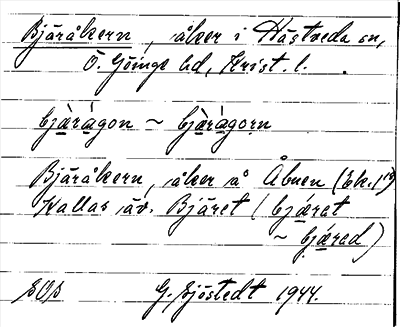 Bjäråkern, åker i Hästveda sn,
Ö. Göinge hd, Krist. l.
bjæ̀rágon ~ bjæ̀rágorn
Bjäråkern, åker å Åbuen (Ek. 1¹⁹)
Kallas äv. Bjäret (bjǽrat
~ bjǽrad)
G. Sjöstedt 1944.